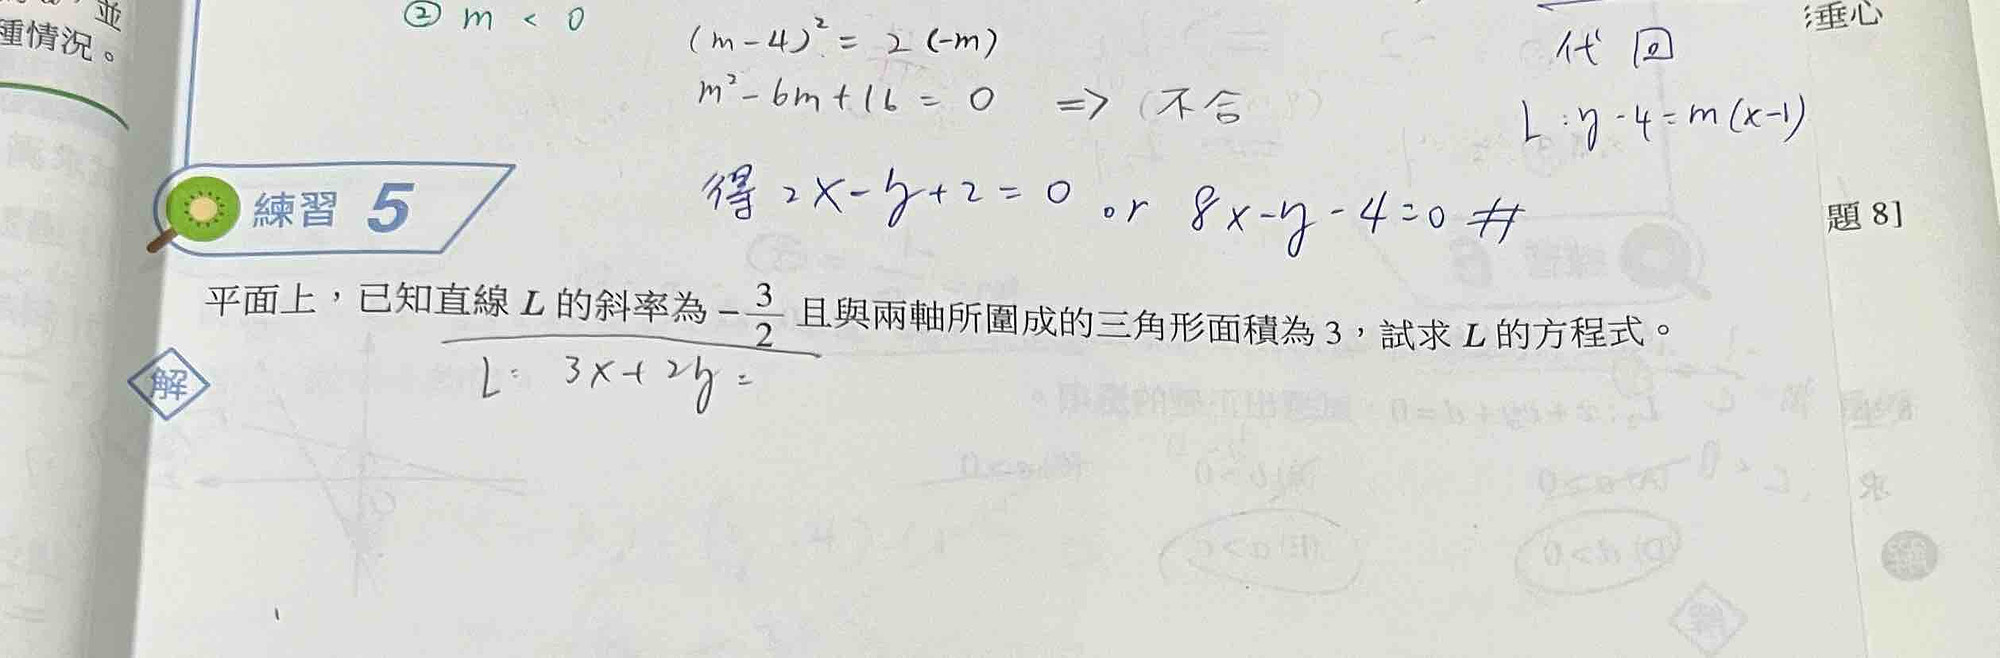 並
種情況。
② m < 0
(m-4)² = 2(-m)
m²-6m+16 = 0 => (不合
代回
L:y-4=m(x-1)
垂心
得 2x-y+2=0 or 8x-y-4=0 #
練習 5
題 8]
平面上,已知直線 L 的斜率為 -3/2 且與兩軸所圍成的三角形面積為 3,試求 L 的方程式。
解
L: 3x+2y=